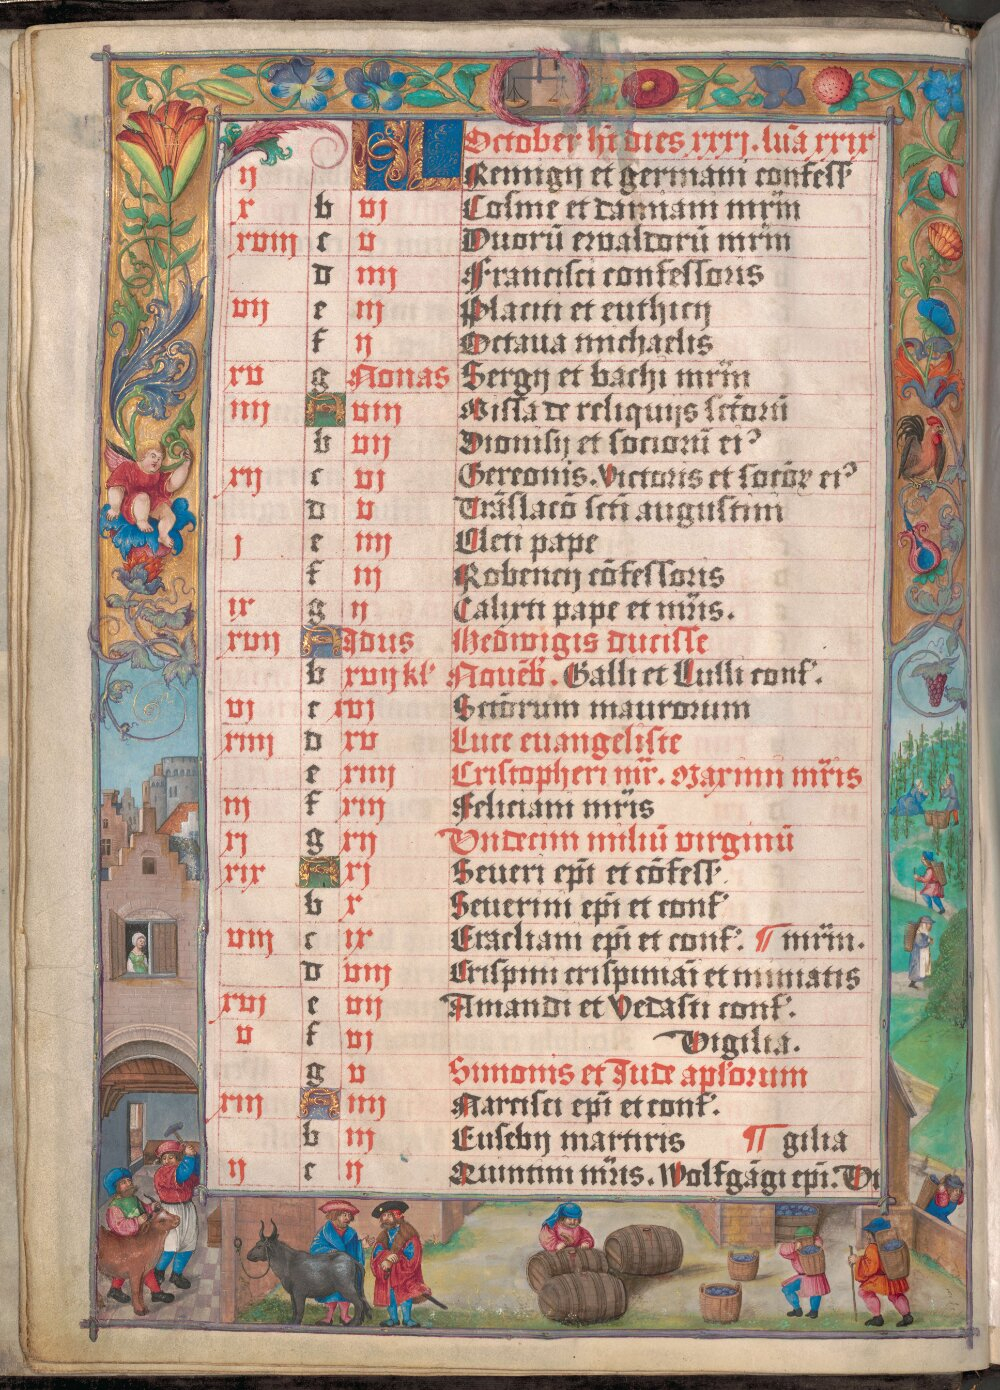 KL October hꝫ dies xxxj. luã xxix
ij Remigij et germani confess᷒
x b vj Cosme et damiani mrm̃
xviij c v Duorũ ewaldorũ mrm̃
d iiij Francisci confessoris
vij e iij Placiti et euthicij
f ij Octaua michaelis
xv g Nonas Sergij et bachi mrm̃
iiij A viij Missa de reliquijs sctõrũ
b vij Dionisij et sociorũ eiꝰ
xij c vj Gereonis. Victoris et socõꝝ eiꝰ
d v Trãslacõ scti augustini
j e iiij Cleti pape
f iij cõfessoris
ix g ij Calixti pape et mr̃is.
xvij A Idus Hedwigis ducisse
b xvij kl' Nouẽb'. Galli et Lulli conf'.
vj c xvj Sctõrum maurorum
xiiij d xv Luce euangeliste
e xiiij Cristopheri mr̃. Maximi mr̃is
iij f xiij Feliciani mr̃is
xj g xij Undecim miliũ virginũ
xix A xj Seueri ep̃i et cõfess'.
b x Seuerini ep̃i et conf'
viij c ix ep̃i et conf'. ¶ mrm̃.
d viij Crispini crispiniãi et miniatis
xvj e vij Amandi et Vedasti conf'.
v f vj Vigilia.
g v Simonis et Jude apl'orum
xiij A iiij Narcisci ep̃i et conf'.
b iij Eusebij martiris ¶ gilia
ij c ij Quintini mr̃is. Wolfgãgi ep̃i. Vi